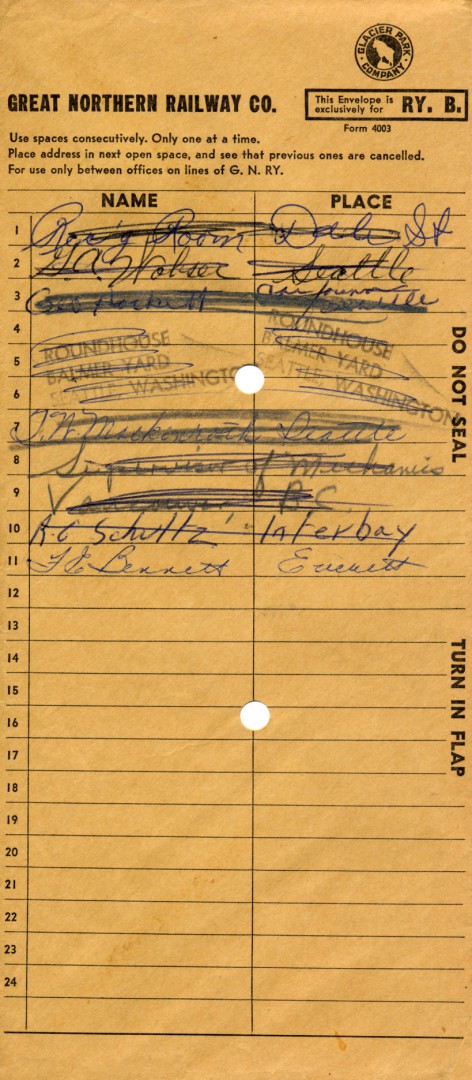 GLACIER PARK
COMPANY
GREAT NORTHERN RAILWAY CO.
This Envelope is exclusively for RY. B.
Form 4003
Use spaces consecutively. Only one at a time.
Place address in next open space, and see that previous ones are cancelled.
For use only between offices on lines of G. N. RY.
NAME PLACE
1 Room Dale St
2 Seattle
3 Seattle
4
ROUNDHOUSE ROUNDHOUSE
5 BALMER YARD BALMER YARD
SEATTLE, WASHINGTON SEATTLE, WASHINGTON
6
7 Seattle
8 of Mechanics
9 Vancouver B.C.
10 A.C Schultz Interbay
11 Bennett Everett
12
13
14
15
16
17
18
19
20
21
22
23
24
DO NOT SEAL
TURN IN FLAP